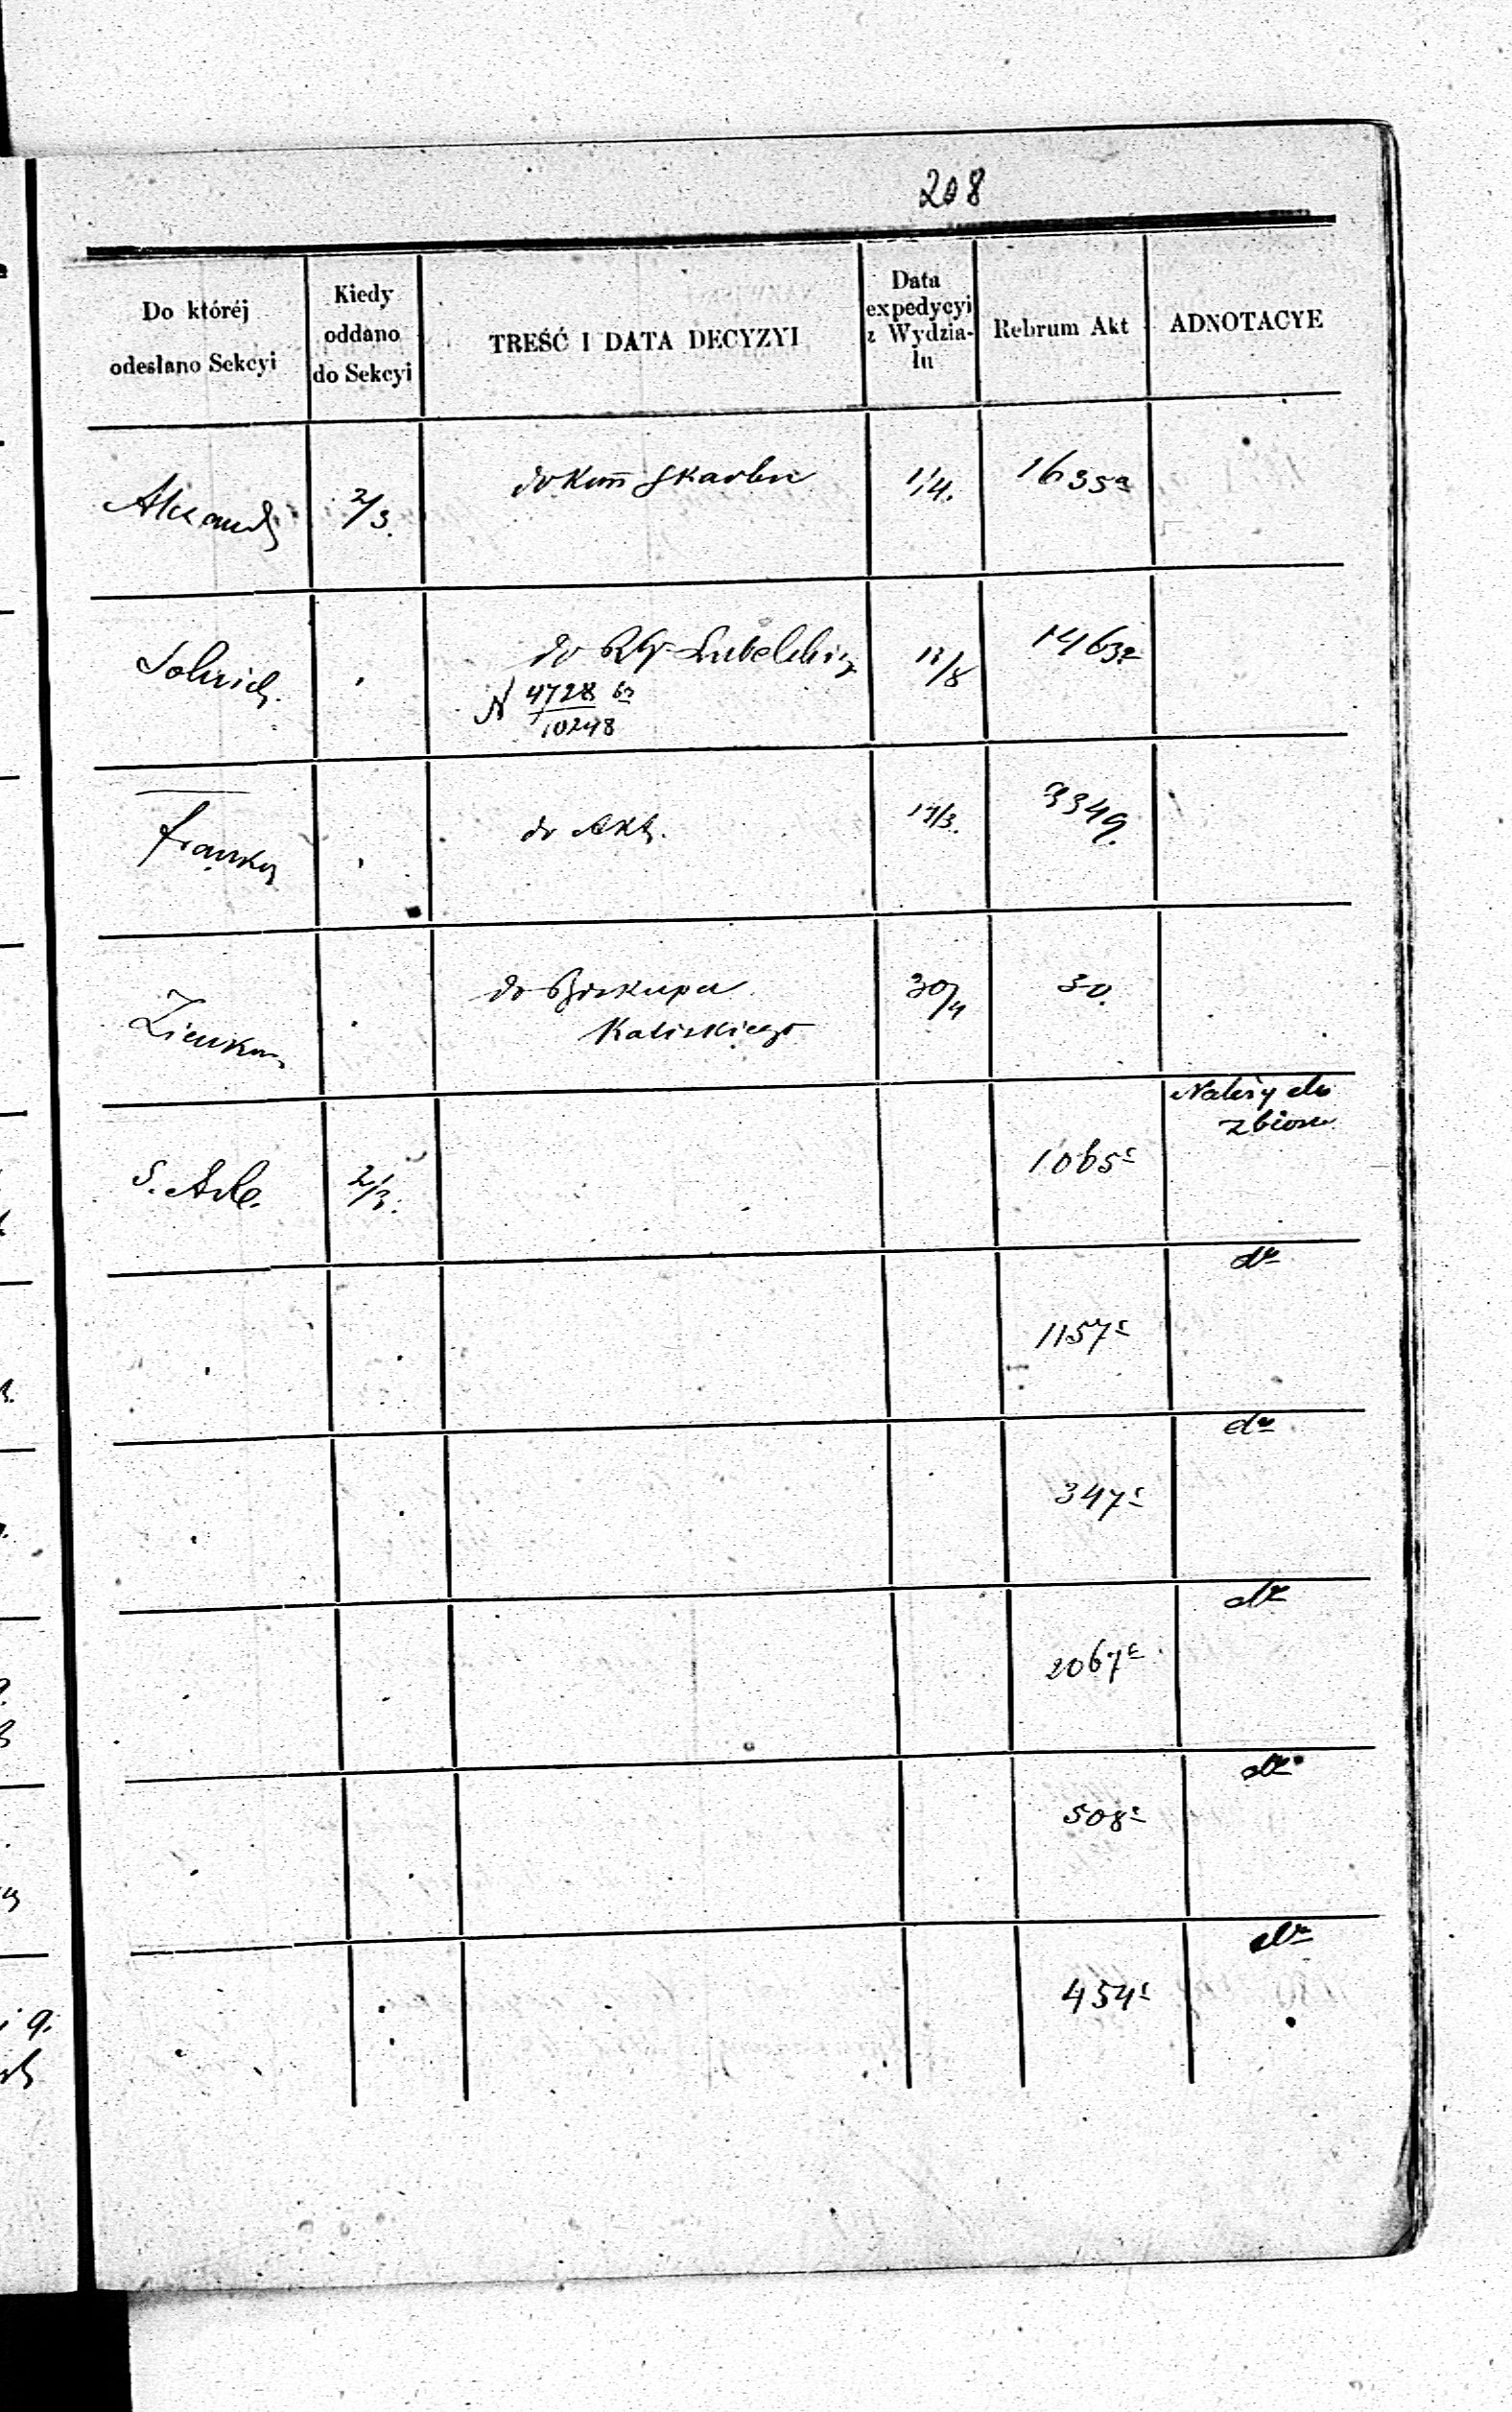 208
Do któréj
odesłano Sekcyi
Kiedy
oddano
do Sekcyi
TREŚĆ I DATA DECYZYI
Data
expedycyi
z Wydzia-
łu
Rebrum Akt
ADNOTACYE
2/3.
do Kom Skarbu
1/4.
1635a
do RG Lubelskiego
N 4728 63
10248
1463a
do Akt.
17/3.
3349.
do Biskupa
Kaliskiego
30/4
30.
2/3.
1065c
Należy do
zbioru
1157c
do
347c
do
2067c
do
508c
do
454c
do